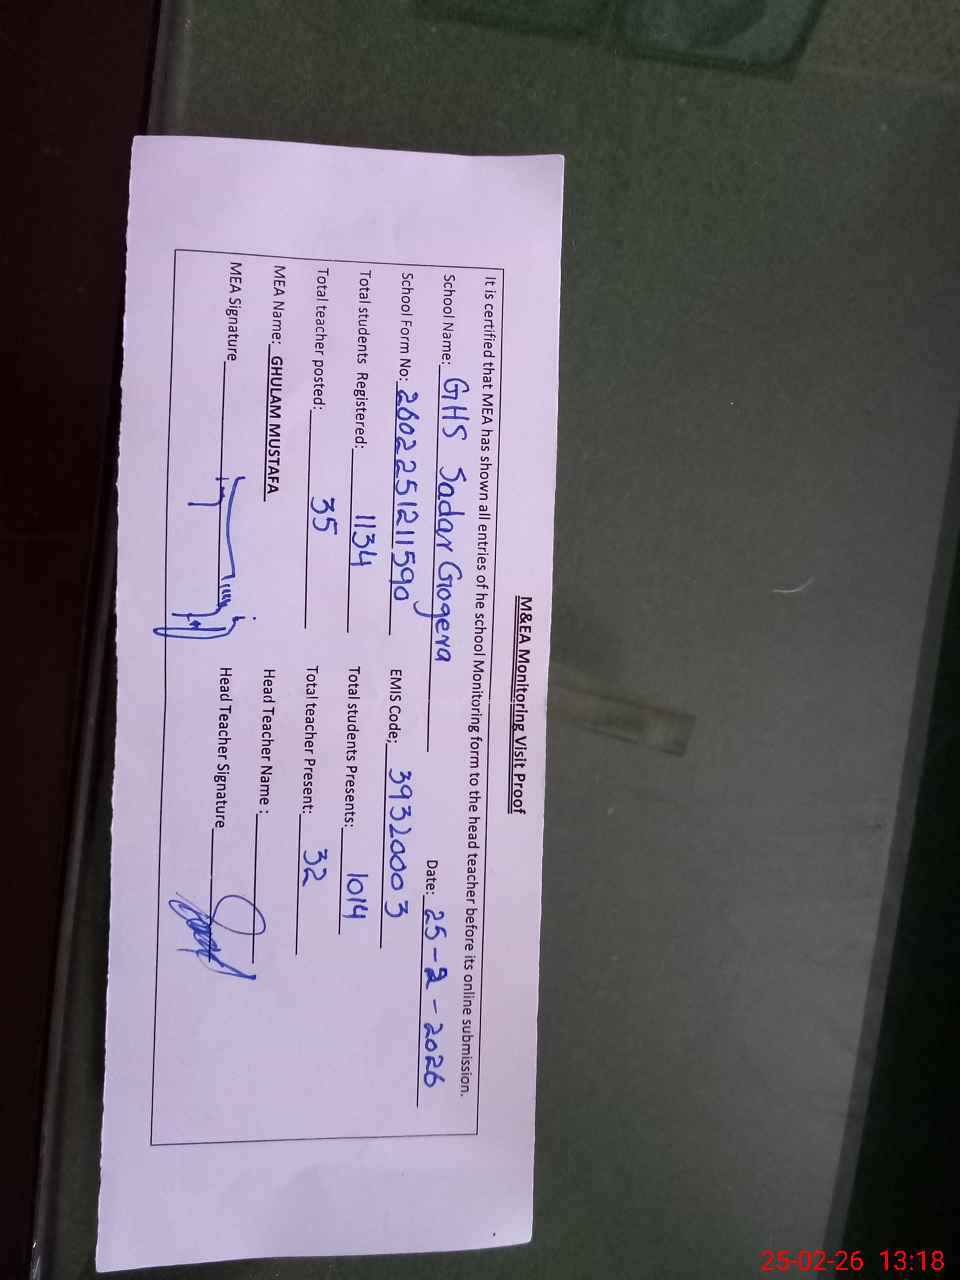 M&EA Monitoring Visit Proof
It is certified that MEA has shown all entries of he school Monitoring form to the head teacher before its online submission.
School Name: GHS Sadar Gogera Date: 25-2-2026
School Form No: 260225121159​0 EMIS Code; 39320003
Total students Registered: 1134 Total students Presents: 1014
Total teacher posted: 35 Total teacher Present: 32
MEA Name: GHULAM MUSTAFA Head Teacher Name :
MEA Signature Head Teacher Signature
25-02-26 13:18